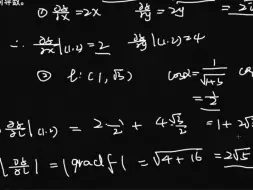 的导数。
① ∂z/∂x = 2x ∂z/∂y = 2y
∴ ∂z/∂x|(1,2) = 2 ∂z/∂y|(1,2) = 4
② l: (1, √3) cosα = 1/√(1+3) = 1/2
∂z/∂l|(1,2) = 2·1/2 + 4·√3/2 = 1+2√3
|∂z/∂l| = |grad f| = √(4+16) = 2√5